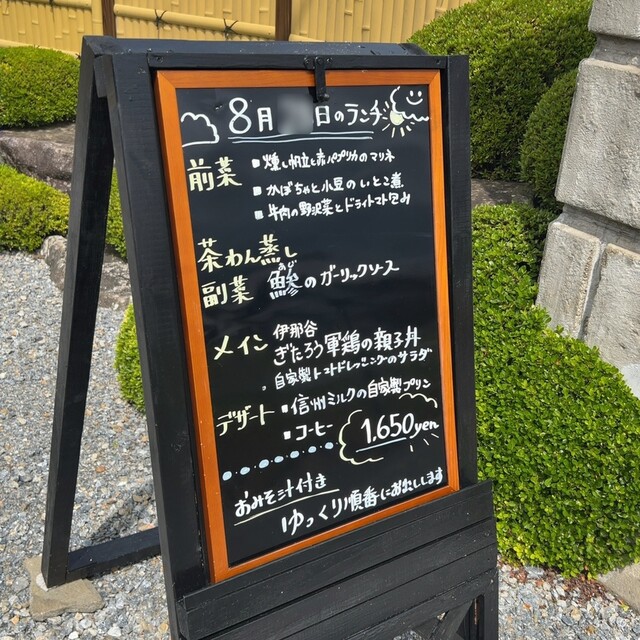 8月 日のランチ
前菜 ▪燻し帆立と赤パプリカのマリネ
▪かぼちゃと小豆のいとこ煮
▪牛肉の野沢菜とドライトマト包み
茶わん蒸し
副菜 鯵のガーリックソース
あじ
メイン 伊那谷
ぎたろう軍鶏の親子丼
自家製トマトドレッシングのサラダ
デザート ▪信州ミルクの自家製プリン
▪コーヒー
1,650yen
おみそ汁付き
ゆっくり順番にお出しします